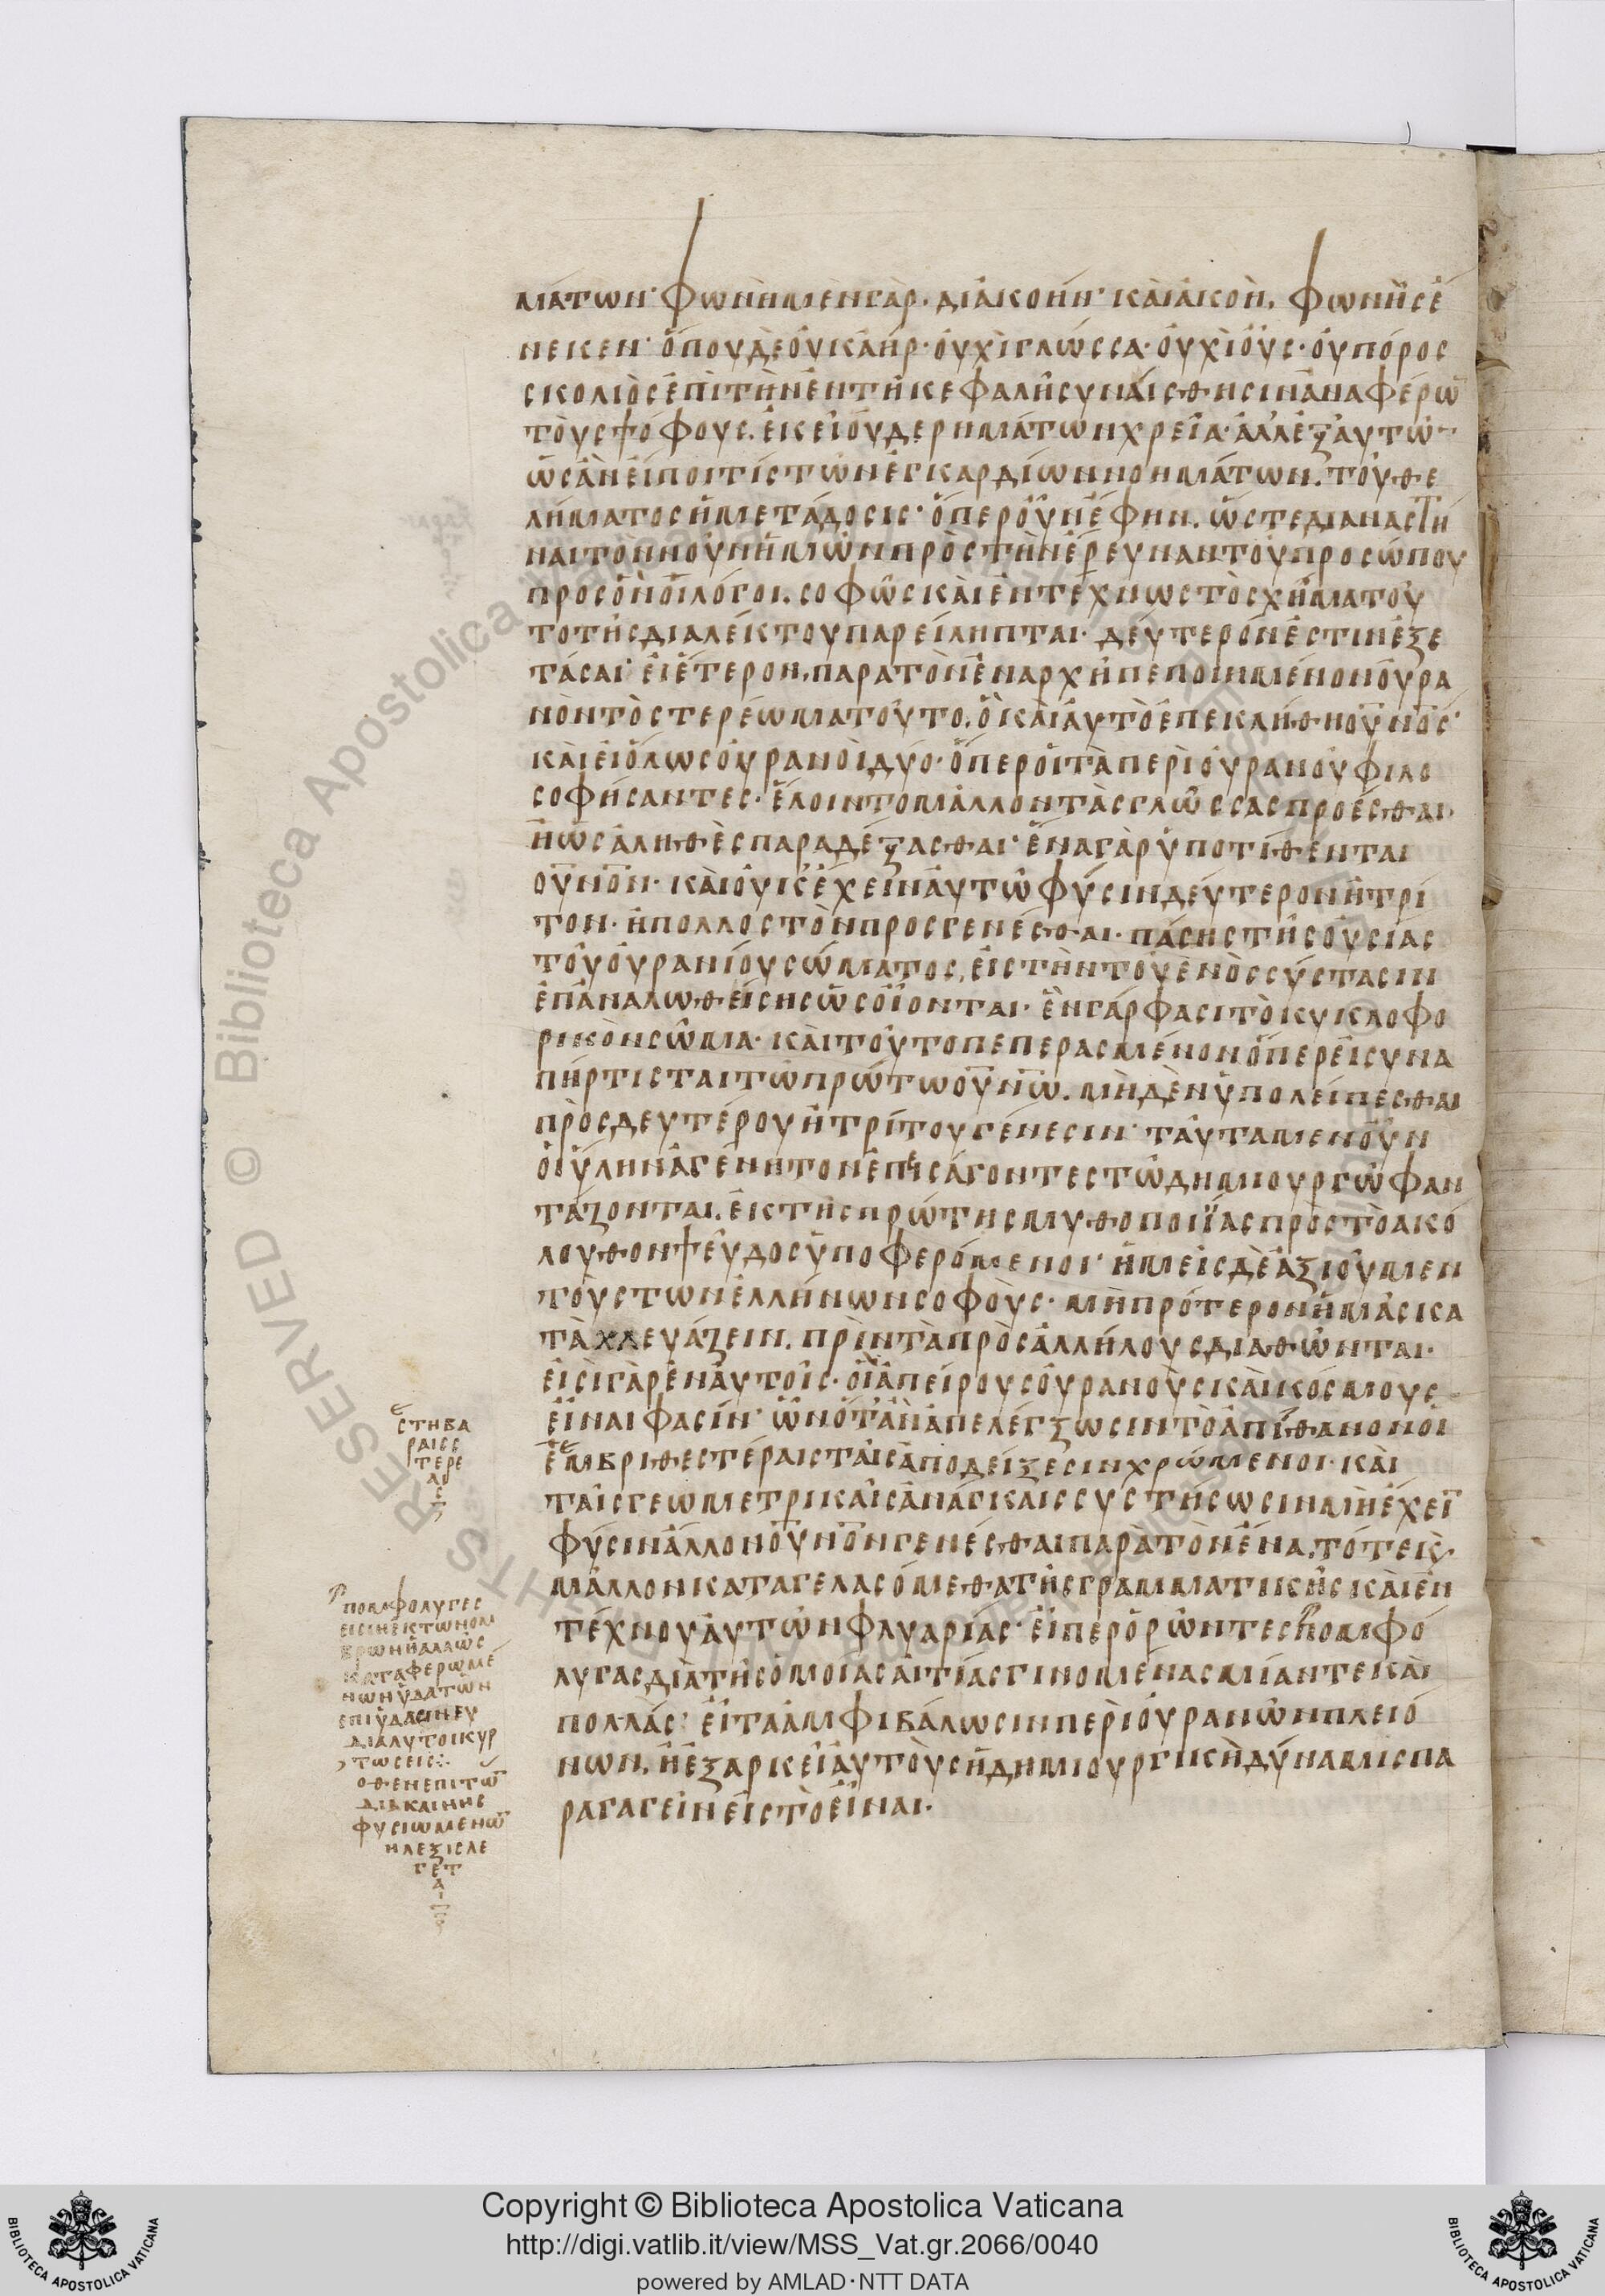 ΜΆΤΩΝ· ΦΩΝῊΜΕΝΓᾺΡ· ΔΙἈΚΟΉΝ· ΚᾺΙἈΚΟῊ. ΦΩΝΗ͂ΣἙ
ΝΕΚΕΝ· ὍΠΟΥΔΕΟΥ̓ΚἈΉΡ· ΟΥ̓ΧῚΓΛΩ͂ΣΣΑ· ΟΥ̓ΧῚΟΥ̓͂Σ· ΟΥ̓ΠΌΡΟΣ
ΣΚΟΛΙῸΣἘΠῚΤῊΝἘΝΤΗ͂ΚΕΦΑΛΗ͂ΣΥΝΆΙΣΘΗΣΙΝἈΝΑΦΈΡΩ̄
ΤΟῪΣΨΌΦΟΥΣ. ἘΚΕΙ͂ΟΥ̓ΔΕΡΗΜΆΤΩΝΧΡΕΊΑ· ἈΛΛἘΞΑΥΤΩ͂
ὩΣἊΝΕΊΠΟΙΤΙΣΤΩ͂ΝἘΓΚΑΡΔΊΩΝΝΟΗΜΆΤΩΝ. ΤΟΥ͂ΘΕ
ΛΉΜΑΤΟΣἩΜΕΤΆΔΟΣΙΣ· ὍΠΕΡΟΥ̓͂ΝἜΦΗΝ. ὭΣΤΕΔΙΑΝΑΣΤΗ
ΝΑΙΤῸΝΝΟΥ͂ΝἩΜΩ͂ΝΠΡῸΣΤῊΝἜΡΕΥΝΑΝΤΟΥ͂ΠΡΟΣΏΠΟΥ
ΠΡΟΣὋΝΟἹΛΌΓΟΙ. ΣΟΦΩ͂ΣΚΑῚἘΝΤΈΧΝΩΣΤῸΣΧΗ͂ΜΑΤΟΥ͂
ΤΟΤΗ͂ΣΔΙΑΛΈΙΚΤΟΥΠΑΡΕΊΛΗΠΤΑΙ· ΔΕΎΤΕΡΌΝἘΣΤΙΝἘΞΕ
ΤΆΣΑΙ· ΕἸἝΤΕΡΟΝ. ΠΑΡΑΤῸΝἘΝΑΡΧΗ͂ΠΕΠΟΙΗΜΈΝΟΝΟΥ̓ΡΑ
ΝῸΝΤῸΣΤΕΡΈΩΜΑΤΟΥ͂ΤΟ. Ὃ ΚΑῚΑΥ̓ΤῸἘΠΕΚΛΉΘΗΟΥ̅ΝΟ̅Σ·
ΚΑῚΕἸὍΛΩΣΟΥ̓ΡΑΝΟῚΔΎΟ· ὍΠΕΡΟἹΤᾺΠΕΡῚΟΥ̓ΡΑΝΟΥ͂ΦΙΛΟ
ΣΟΦΉΣΑΝΤΕΣ· ἝΛΟΙΝΤΟΜΑ͂ΛΛΟΝΤᾺΣΓΛΏΣΣΑΣΠΡΟΈΣΘΑΙ·
ἪὩΣἈΛΗΘῈΣΠΑΡΑΔΈΞΑΣΘΑΙ· ἝΝΑΓᾺΡὙΠΟΤΊΘΕΝΤΑΙ
ΟΥ̅ΝΟ̅Ν· ΚΑῚΟΥ̓ΚἜΧΕΙΝΑΥ̓ΤΩ͂ΦΎΣΙΝΔΕΎΤΕΡΟΝἪΤΡΙ
ΤΟΝ· ἪΠΟΛΛΟΣΤῸΝΠΡΟΣΓΕΝΈΣΘΑΙ· ΠΆΣΗΣΤΗ͂ΣΟΥ̓ΣΊΑΣ
ΤΟΥ͂ΟΥ̓ΡΑΝΊΟΥΣΏΜΑΤΟΣ, ΕἸΣΤῊΝΤΟΥ͂ἙΝῸΣΣΎΣΤΑΣΙΝ
ἘΠἈΝΑΛΩΘΕΊΣΗΣὩΣΟἼΟΝΤΑΙ· ἛΝΓΆΡΦΑΣΙΤῸΚΥΚΛΟΦΟ
ΡΙΚῸΝΣΩ͂ΜΑ· ΚΑῚΤΟΥ͂ΤΟΠΕΠΕΡΑΣΜΈΝΟΝὍΠΕΡΕἸΣΥΝΑ
ΠΉΡΤΙΣΤΑΙΤΩ͂ΠΡΏΤΩΟΥ̅ΝΩ̅. ΜΗΔῈΝὙΠΟΛΕΊΠΕΣΘΑΙ
ΠΡῸΣΔΕΥΤΈΡΟΥἪΤΡΊΤΟΥΓΈΝΕΣΙΝ· ΤΑΥ͂ΤΑΜΕΝΟΥ̓͂Ν
ΟἹὝΛΗΝἈΓΈΝΗΤΟΝἘΠΕΙΣΆΓΟΝΤΕΣΤΩ͂ΔΗΜΙΟΥΡΓΩ͂ΦΑΝ
ΤΆΖΟΝΤΑΙ. ἘΚΤΗ͂ΣΠΡΏΤΗΣΜΥΘΟΠΟΙΪ́ΑΣΠΡΟΣΤῸΑΚΌ
ΛΟΥΘΟΝΨΕΥ͂ΔΟΣὙΠΟΦΕΡΌΜΕΝΟΙ· ἩΜΕΙ͂ΣΔῈἈΞΙΟΥ͂ΜΕΝ
ΤΟῪΣΤΩΝἘΛΛΉΝΩΝΣΟΦΟῪΣ· ΜῊΠΡΌΤΕΡΟΝἩΜΑ͂ΣΚΑ
ΤᾺΧΛΕΥΆΖΕΙΝ. ΠΡῚΝΤᾺΠΡῸΣἈΛΛΉΛΟΥΣΔΙΑΘΩ͂ΝΤΑΙ·
ΕἸΣῚΓᾺΡἘΝΑΥ̓ΤΟΙ͂Σ· ΟἿἈΠΕΊΡΟΥΣΟΥ̓ΡΑΝΟῪΣΚΑῚΚΌΣΜΟΥΣ
ΕἾΝΑΙΦΑΣΊΝ· ὯΝὍΤ'ἊΝἈΠΕΛΈΓΞΩΣΙΝΤῸἈΠΊΘΑΝΟΝΟἹ
ἘΜΒΡΙΘΕΣΤΈΡΑΙΣΤΑΙ͂ΣἈΠΟΔΕΊΞΕΣΙΝΧΡΏΜΕΝΟΙ· ΚΑῚ
ΤΑΙ͂ΣΓΕΩΜΕΤΡΙΚΑΙ͂ΣἈΝΆΓΚΑΙΣΣΥΣΤΉΣΩΣΙΝΜῊἜΧΕΙ̅
ΦΎΣΙΝἌΛΛΟΝΟΥ̅ΝΟ̅ΝΓΕΝΈΣΘΑΙΠΑΡᾺΤῸΝἝΝΑ. ΤΌΤΕΚ̀
ΜΑ͂ΛΛΟΝΚΑΤΑΓΕΛΑΣΌΜΕΘΑΤΗ͂ΣΓΡΑΜΜΑΤΙΚΗ͂ΣΚΑῚἘΝ
ΤΈΧΝΟΥΑΥ̓ΤΩ͂ΝΦΛΥΑΡΊΑΣ· ΕἼΠΕΡὉΡΩ͂ΝΤΕΣΠΟΜΦΌ
ΛΥΓΑΣΔΙᾺΤΗ͂ΣὉΜΟΙΑΣΑἸΤΊΑΣΓΙΝΟΜΈΝΑΣΜΊΑΝΤΕΚΑῚ
ΠΟΛΛΆΣ· ΕἾΤΑἈΜΦΙΒΆΛΩΣΙΝΠΕΡῚΟΥ̓ΡΑΝΩ͂ΝΠΛΕΙΌ
ΝΩΝ. ἪἘΞΑΡΚΕΙ͂ΑΥ̓ΤΟῪΣἩΔΗΜΙΟΥΡΓΙΚῊΔΎΝΑΜΙΣΠΑ
ΡΑΓΑΓΕΙ͂ΝΕἸΣΤῸΕἾΝΑΙ·
ΣΤΗΒΑ
ΡΑΙΣΣ
ΤΕΡΕ
ΑΙ
Σ
ΠΟΜΦΟΛΥΓΕΣ
ΕΙΣῚΝἘΚΤΩΝΟΜ
ΒΡΩΝἪἈΛΛΩΣ
ΚΑΤΑΦΕΡΩΜΈ
ΝΩΝὙΔΆΤΩΝ
ΕΠΙὝΔΑΣΙΝΕΥ
ΔΙΆΛΥΤΟΙΚΥΡ
ΤΩΣΕΙΣ:·
ΟΘΕΝΕΠΙΤΩ̅
ΔΙΑΚΑΙΝΗΣ
ΦΥΣΙΩΜΕΝΩ̅
ΗΛΕΞΙΣΛΕ
ΓΕΤ
Α
Ι
Copyright © Biblioteca Apostolica Vaticana
http://digi.vatlib.it/view/MSS_Vat.gr.2066/0040
powered by AMLAD·NTT DATA
BIBLIOTECA APOSTOLICA VATICANA
BIBLIOTECA APOSTOLICA VATICANA